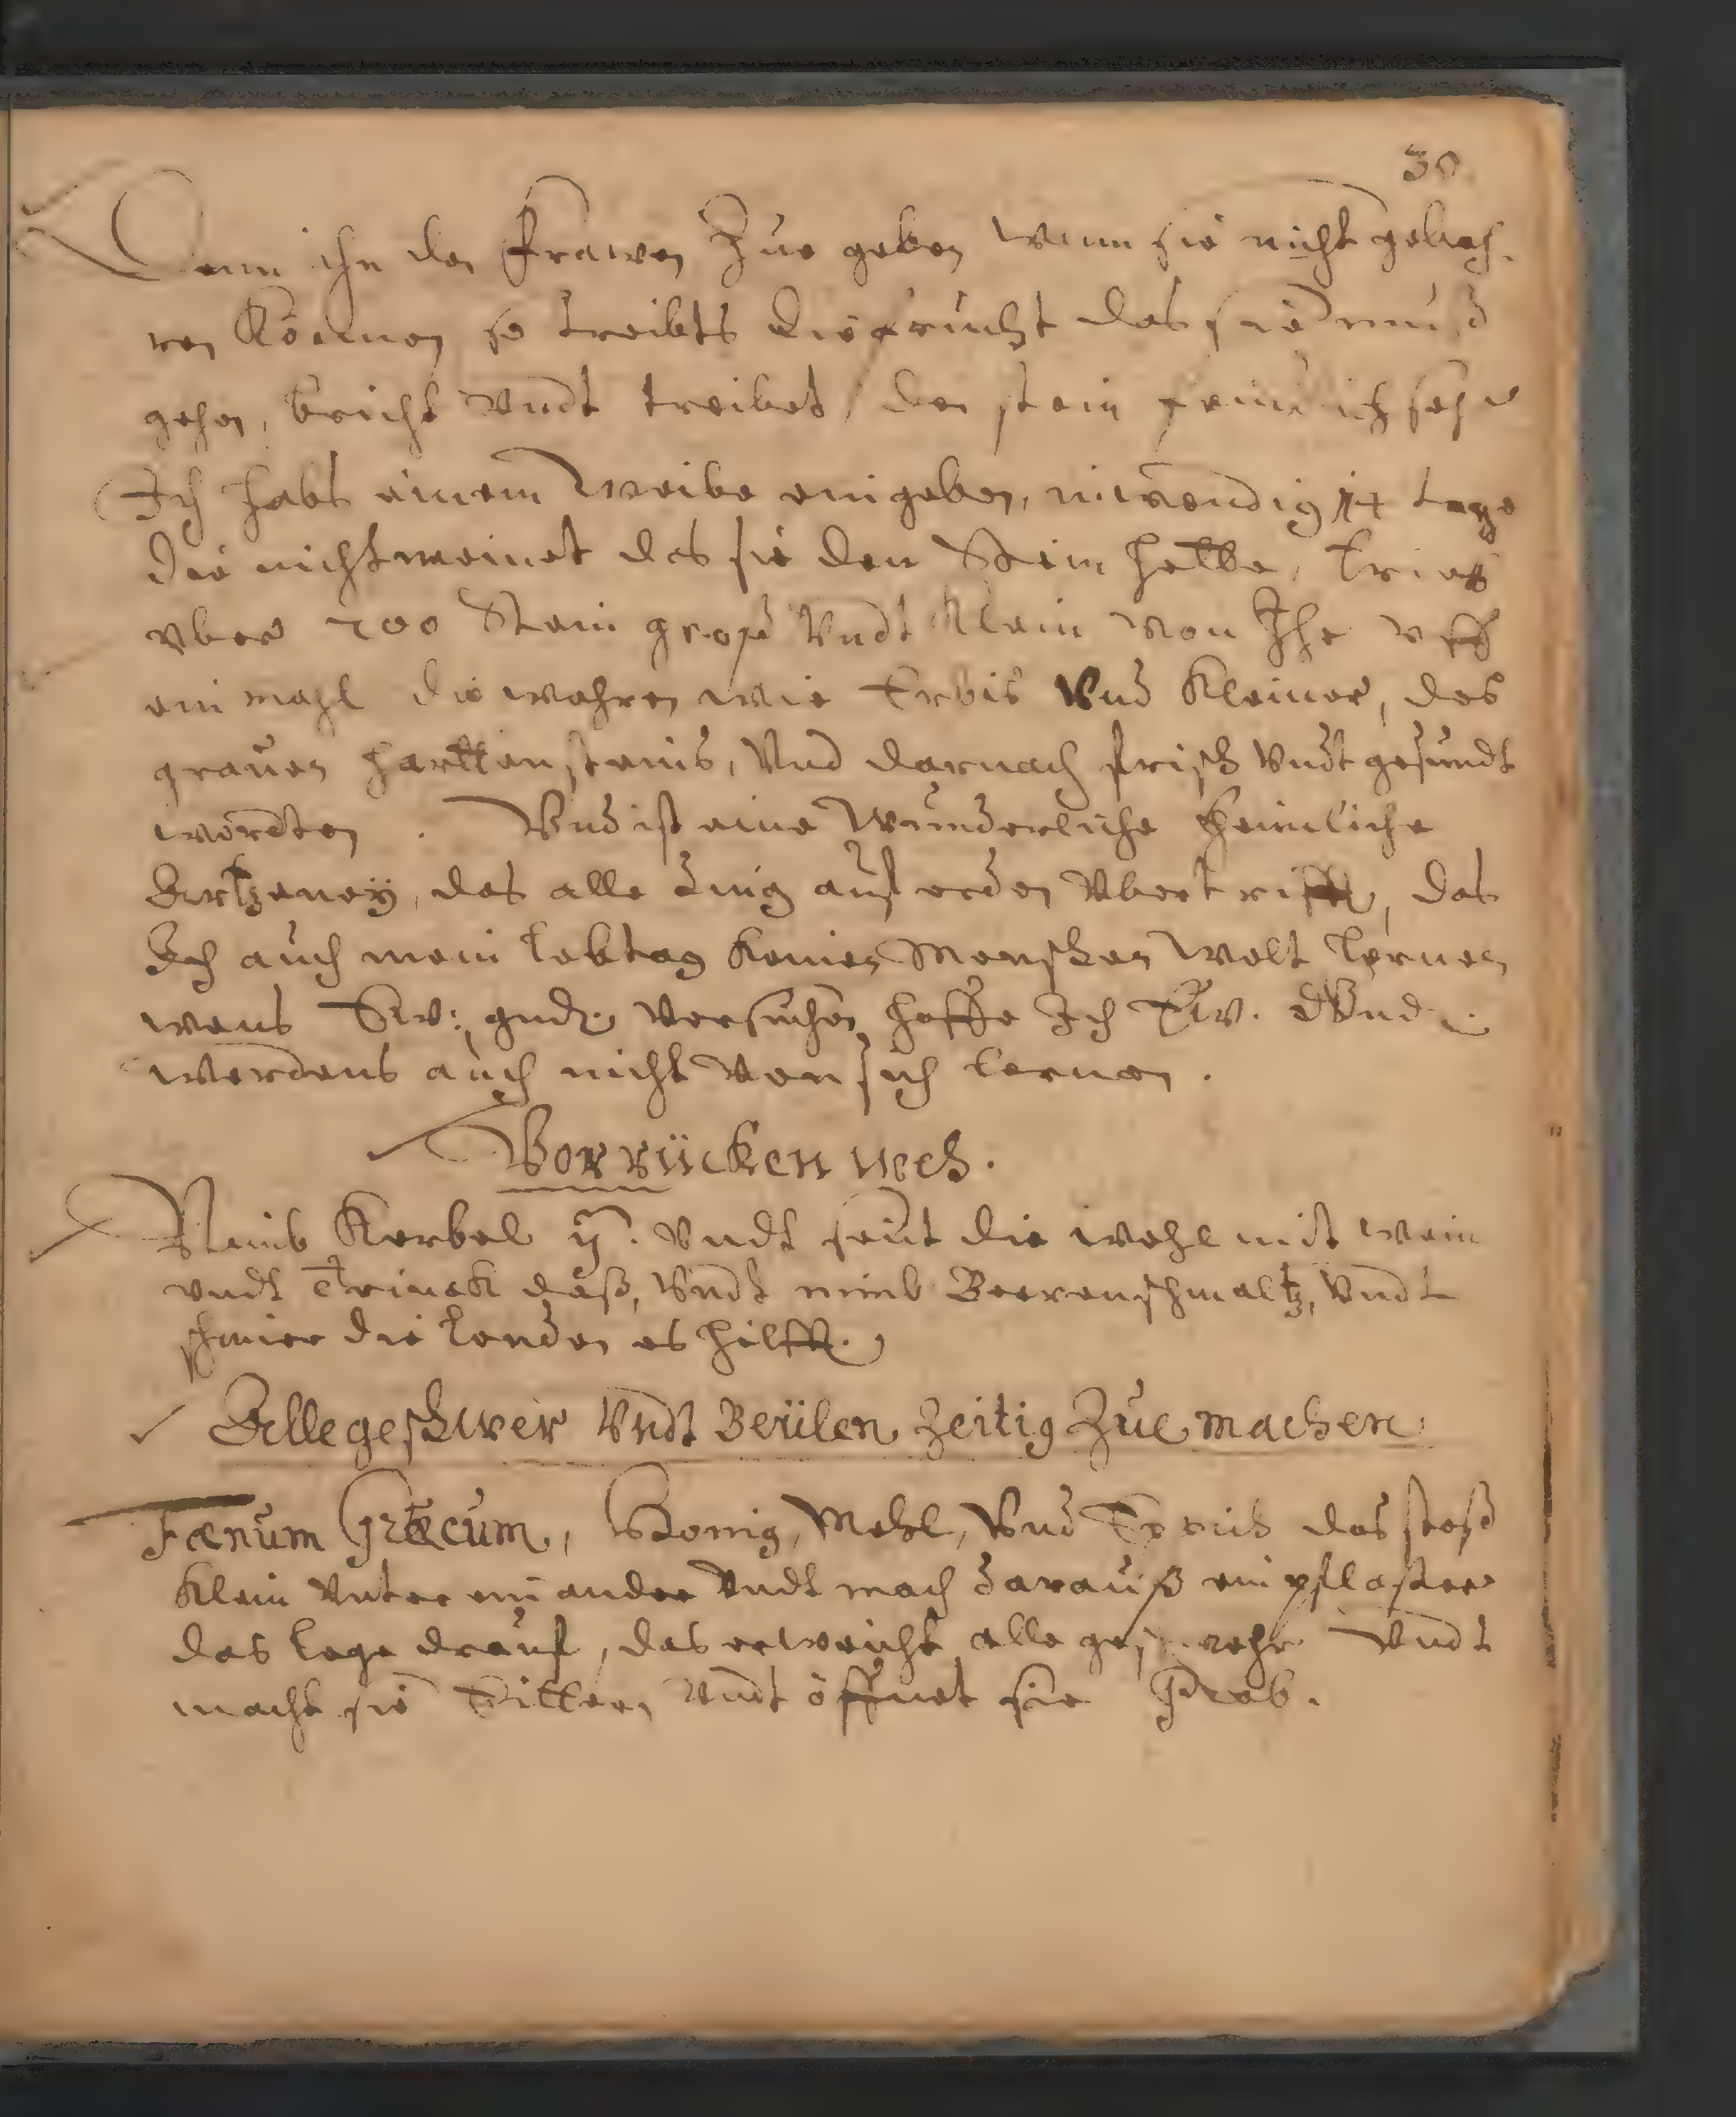 30
Denn ihn den frawen Zue geben wenn sie nicht gebeh-
ren Können so treibts die frucht das sie muß
gehen, bricht Vndt treibet den stein sehr
Ich habs einem Weibe eingeben, inwendig 14 tage
die nicht meinet das sie den Stein hette, trieb
vber 200 Stein groß Vndt Klein von Ihr vff
ein mahl die wahren wie Erbis Vnd Kleiner, des
grauen harttensteins, Vnd darnach frisch Vndt gesundt
wordten. Vnd ist eine Wunderliche heimliche
Artzeney, das alle ding auf erden Vbertrifft, das
Ich auch mein lebtag Keinen Menschen wolt lernen
wens Ew: gnd. versuchen hoffe Ich Ew. Gnd.
werdens auch nicht von sich lernen.
Vor rücken weh.
Nimb Kerbel ij. Vndt seut die wohl mit wein
vndt Trinck daß, Vndt nimb Beerenschmaltz, Vndt
schmier die lenden es hilfft.
Alle geschwer Vndt Beülen Zeitig Zue machen
Fœnum Græcum, Honig, Mehl, Vnd das stoß
Klein Vnter ein ander Vndt mach darauß ein pflaster
das lege drauf, das erweicht alle geschwehr Vndt
macht sie Vndt öffnet sie Prob.